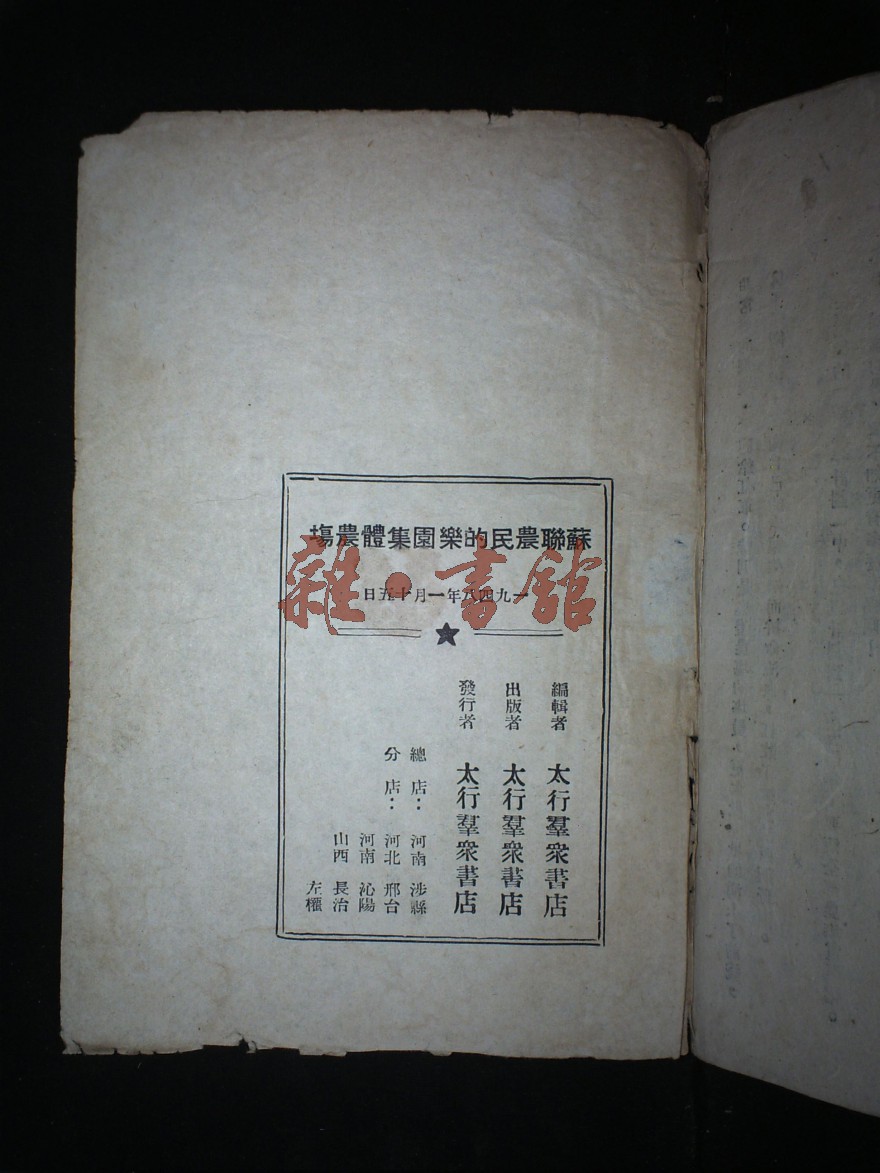 蘇聯農民的樂園集體農場
一九四八年一月十五日
雜·書館
編輯者 太行羣衆書店
出版者 太行羣衆書店
發行者 太行羣衆書店
總店：河南 涉縣
分店：河北 邢台
河南 沁陽
山西 長治
左權